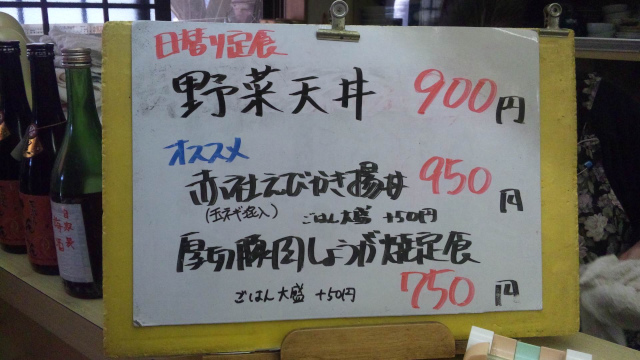 日替り定食
野菜天丼 900円
オススメ
赤社えびかき揚丼 950円
(玉ネギ入)
ごはん大盛 +50円
厚切豚肉しょうが焼定食
ごはん大盛 +50円
750円